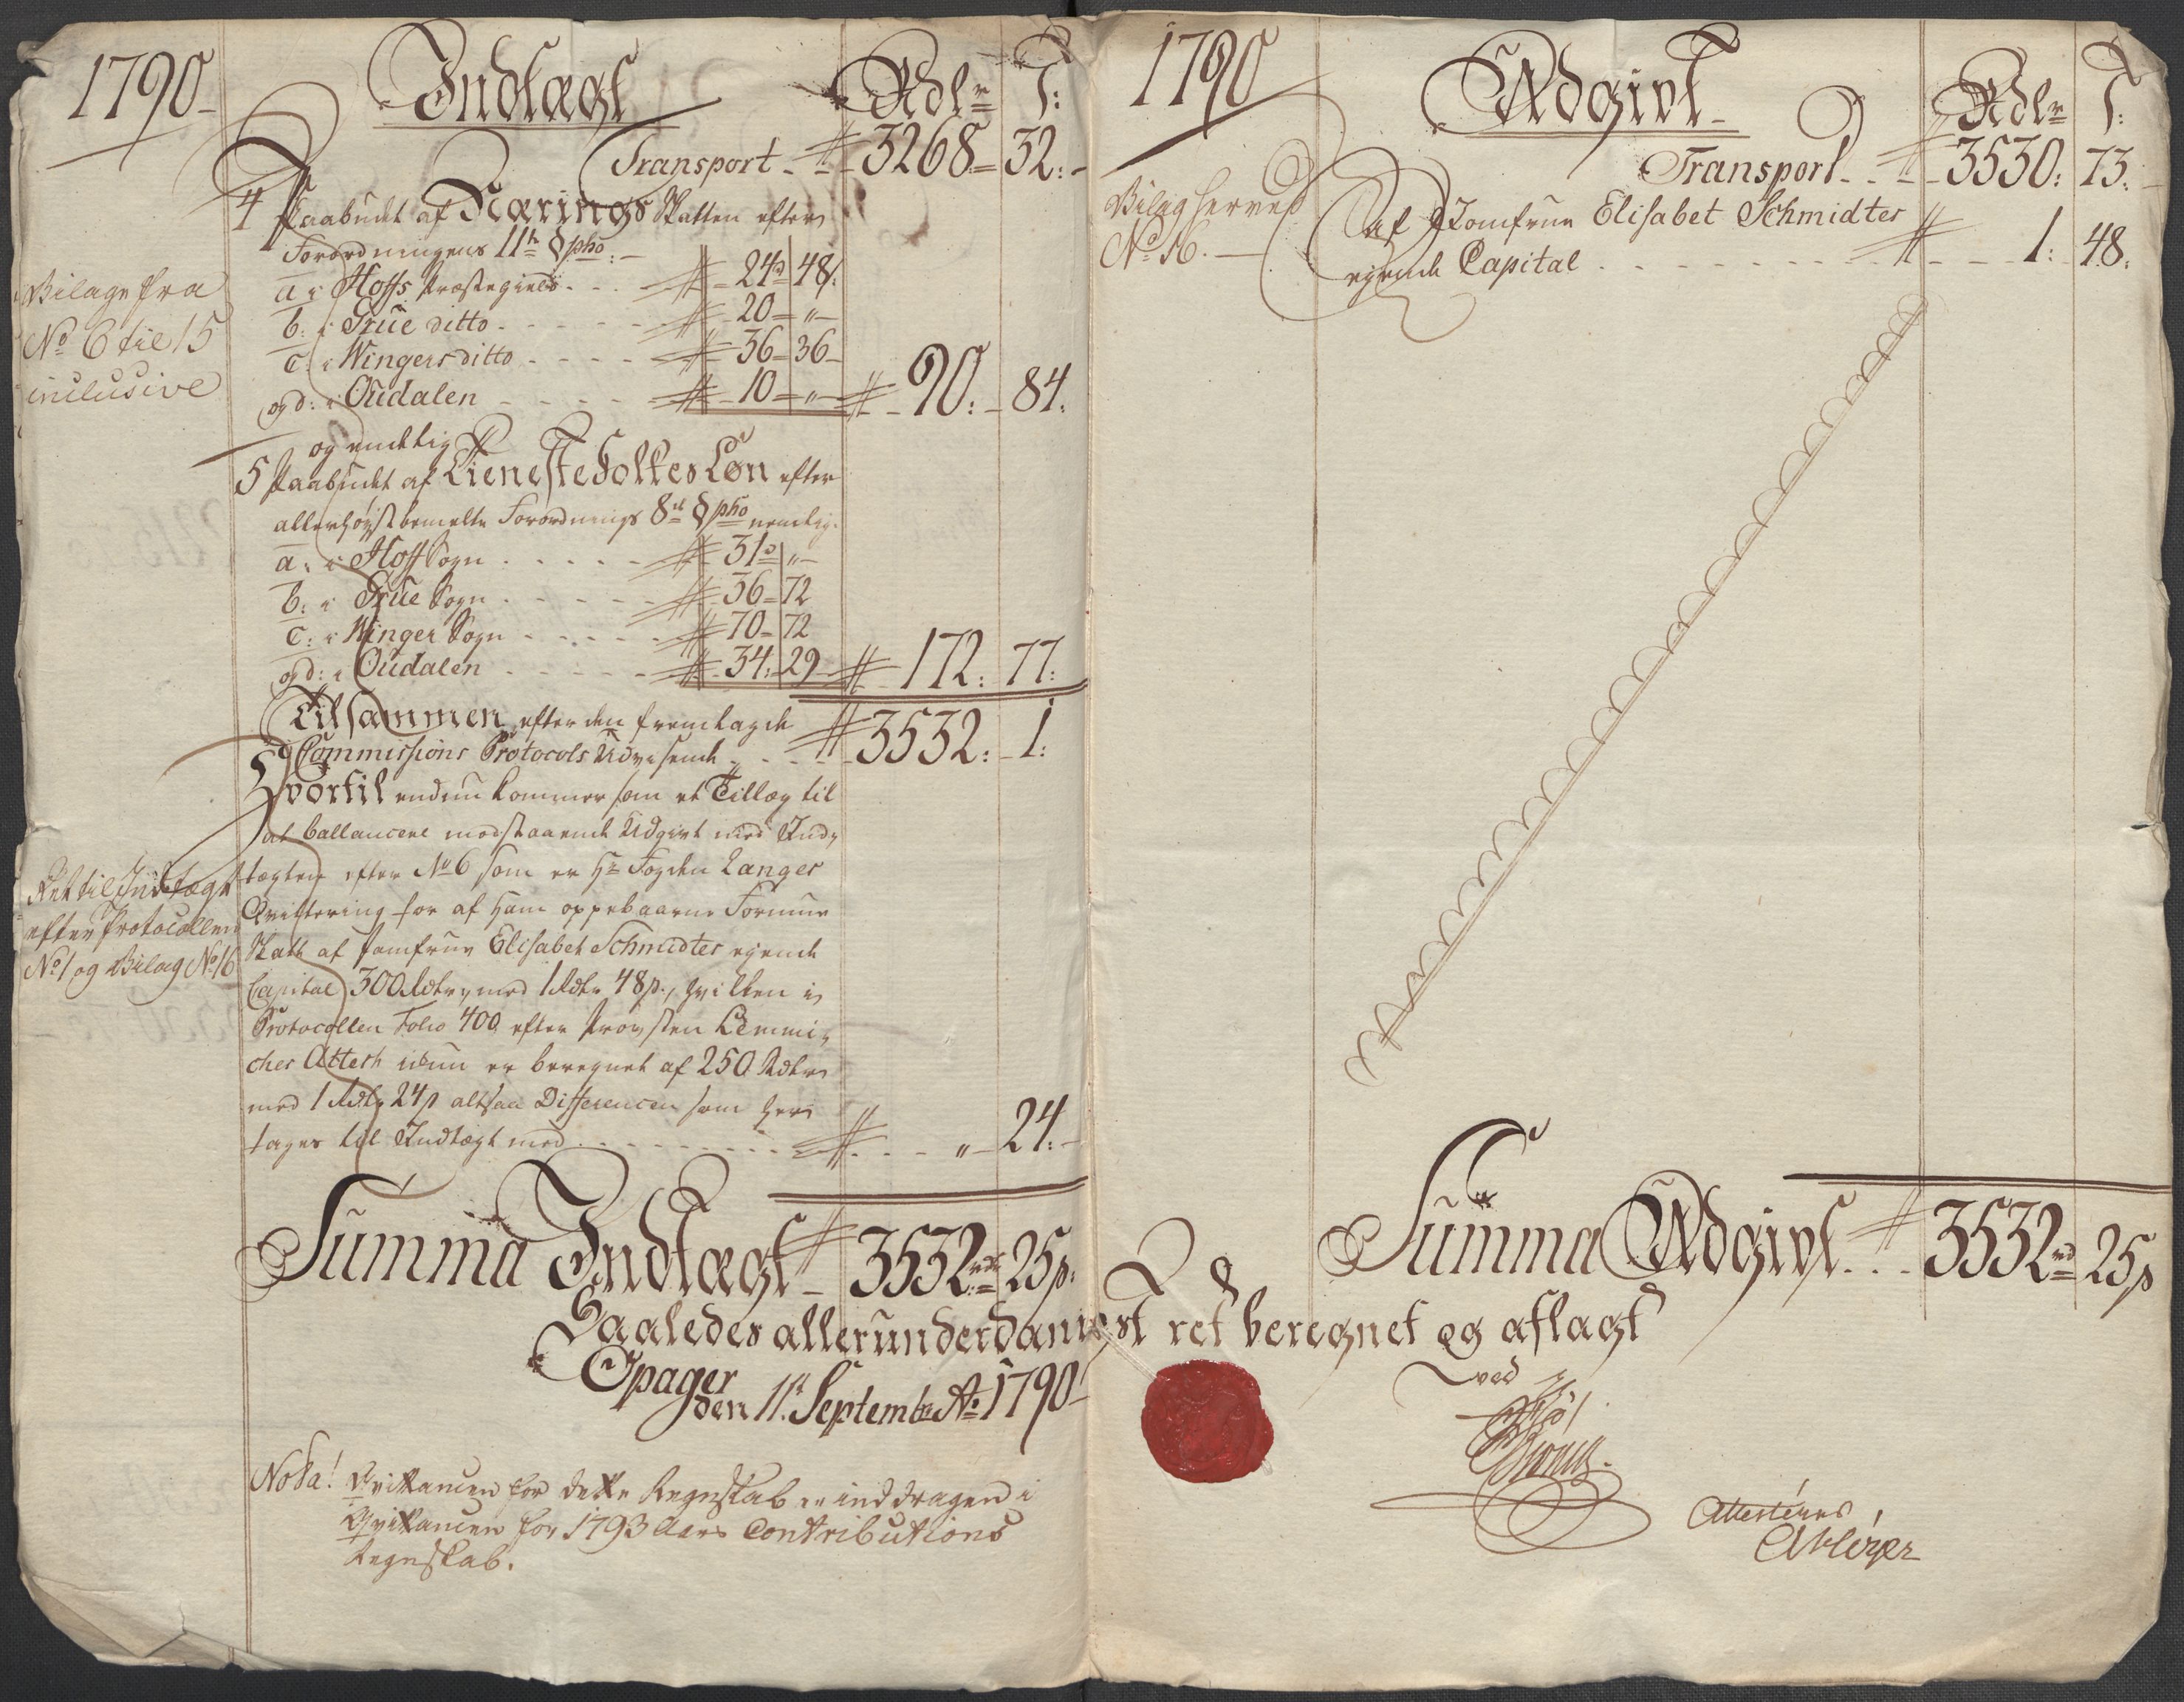 1790
Indtægt
Rdlr
S:
Transport
3268
32:
4 Paabudt af Nærings Skatten efter
Forordningens 11te § pho:
Bilage fra
No 6 til 15
inclusive
a i Hoffs Præstegield
24 48
b: i Grue ditto
20 "
c: i Winger ditto
36 36
og d: i Oudalen
10 "
90: 84:
og endelig
5 Paabudt af Tieneste Folkes Løn efter
allerhøystbemelte Forordnings 8de § pho nemlig
a: i Hoff Sogn
31 "
b: i Grue Sogn
36 72
c: i Winger Sogn
70 72
og d: i Oudalen
34: 29
172: 77:
Tilsammen efter den fremlagde
Commissions Protocols Udvisende
3532: 1:
Hvortil endnu kommer som et Tillæg til
at ballancere modstaaende Udgivt med Ind-
Ret til Indtægt
efter Protocollen
No 1 og Bilag No 16
tægten efter No 6 som er Hr Fogden Langes
Qvittering for af ham oppebaarne Formue
Skatt af Jomfrue Elisabet Schmidtes ejende
Capital 300 Rdlr med 1 Rdlr 48 s., hvilken i
Protocollen Folio 400 efter Provsten Lemmi-
ches Attest ickun er beregnet af 250 Rdlr
med 1 Rdlr 24 s altsaa Differencen som her
tages til Indtægt med
" 24:
Summa Indtægt
3532 rdr 25 s:
1790
Udgivt
Rdlr
S:
Transport
3530: 73:
Bilag herved
No 16.
af Jomfrue Elisabet Schmidtes
ejende Capital
1: 48:
Summa Udgivt
3532 rd 25 s
Saaledes allerunderdanigst ret beregnet og aflagt
Opager
den 11te Septembr Ao 1790
ved
Nota! Qvittancen for dette Regnskab er inddragen i
Qvittancen for 1793 Aars Contributions
Regnskab.
Attesteres